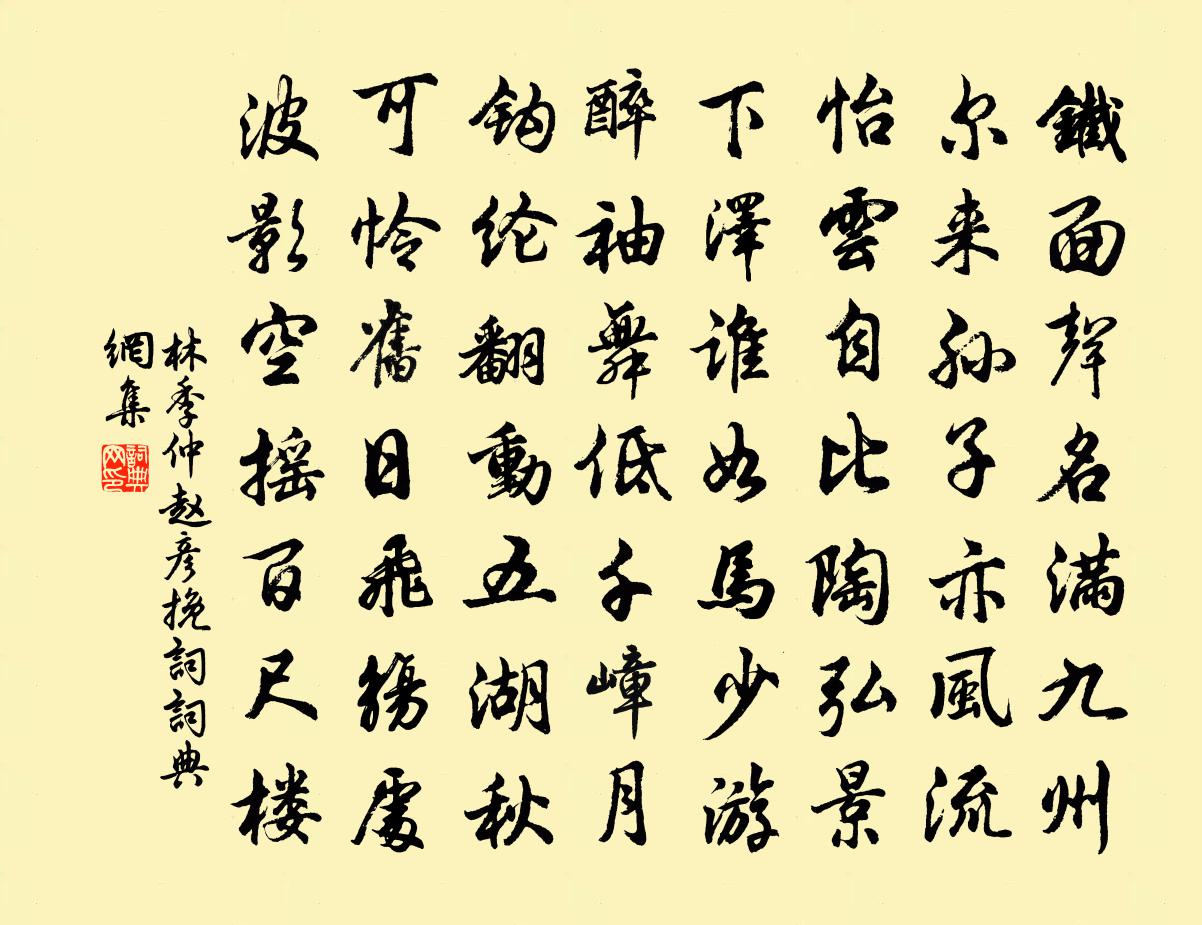 鐵面聲名滿九州
尔来孙子亦風流
怡雲自比陶弘景
下澤誰如馬少游
醉袖舞低千嶂月
鈎纶翻動五湖秋
可怜舊日飛觴處
波影空摇百尺楼
林季仲赵彦挽詞詞典
網集
詞典
网印